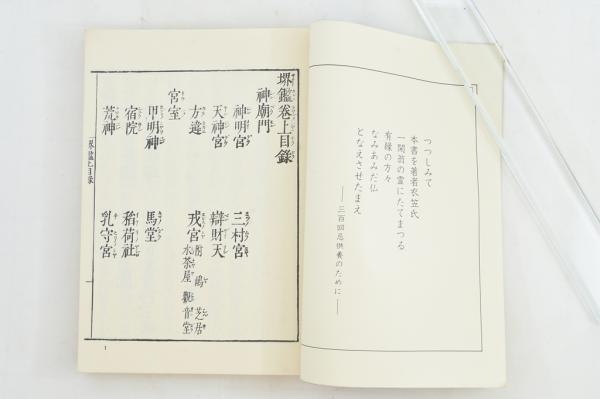 つつしみて
本書を著者衣笠氏
一閑翁の霊にたてまつる
有縁の方々
なみあみだ仏
となえさせたまえ
── 三百回忌供養のために ──
堺鑑卷上目錄
神廟門
神明宮 三村宮
天神宮 辯財天
方違 戎宮 附 鵆 芝居 水茶屋 觀音堂
宮室
甲明神 馬堂
宿院 稻荷社
荒神 乳守宮
堺鑑上目錄
1